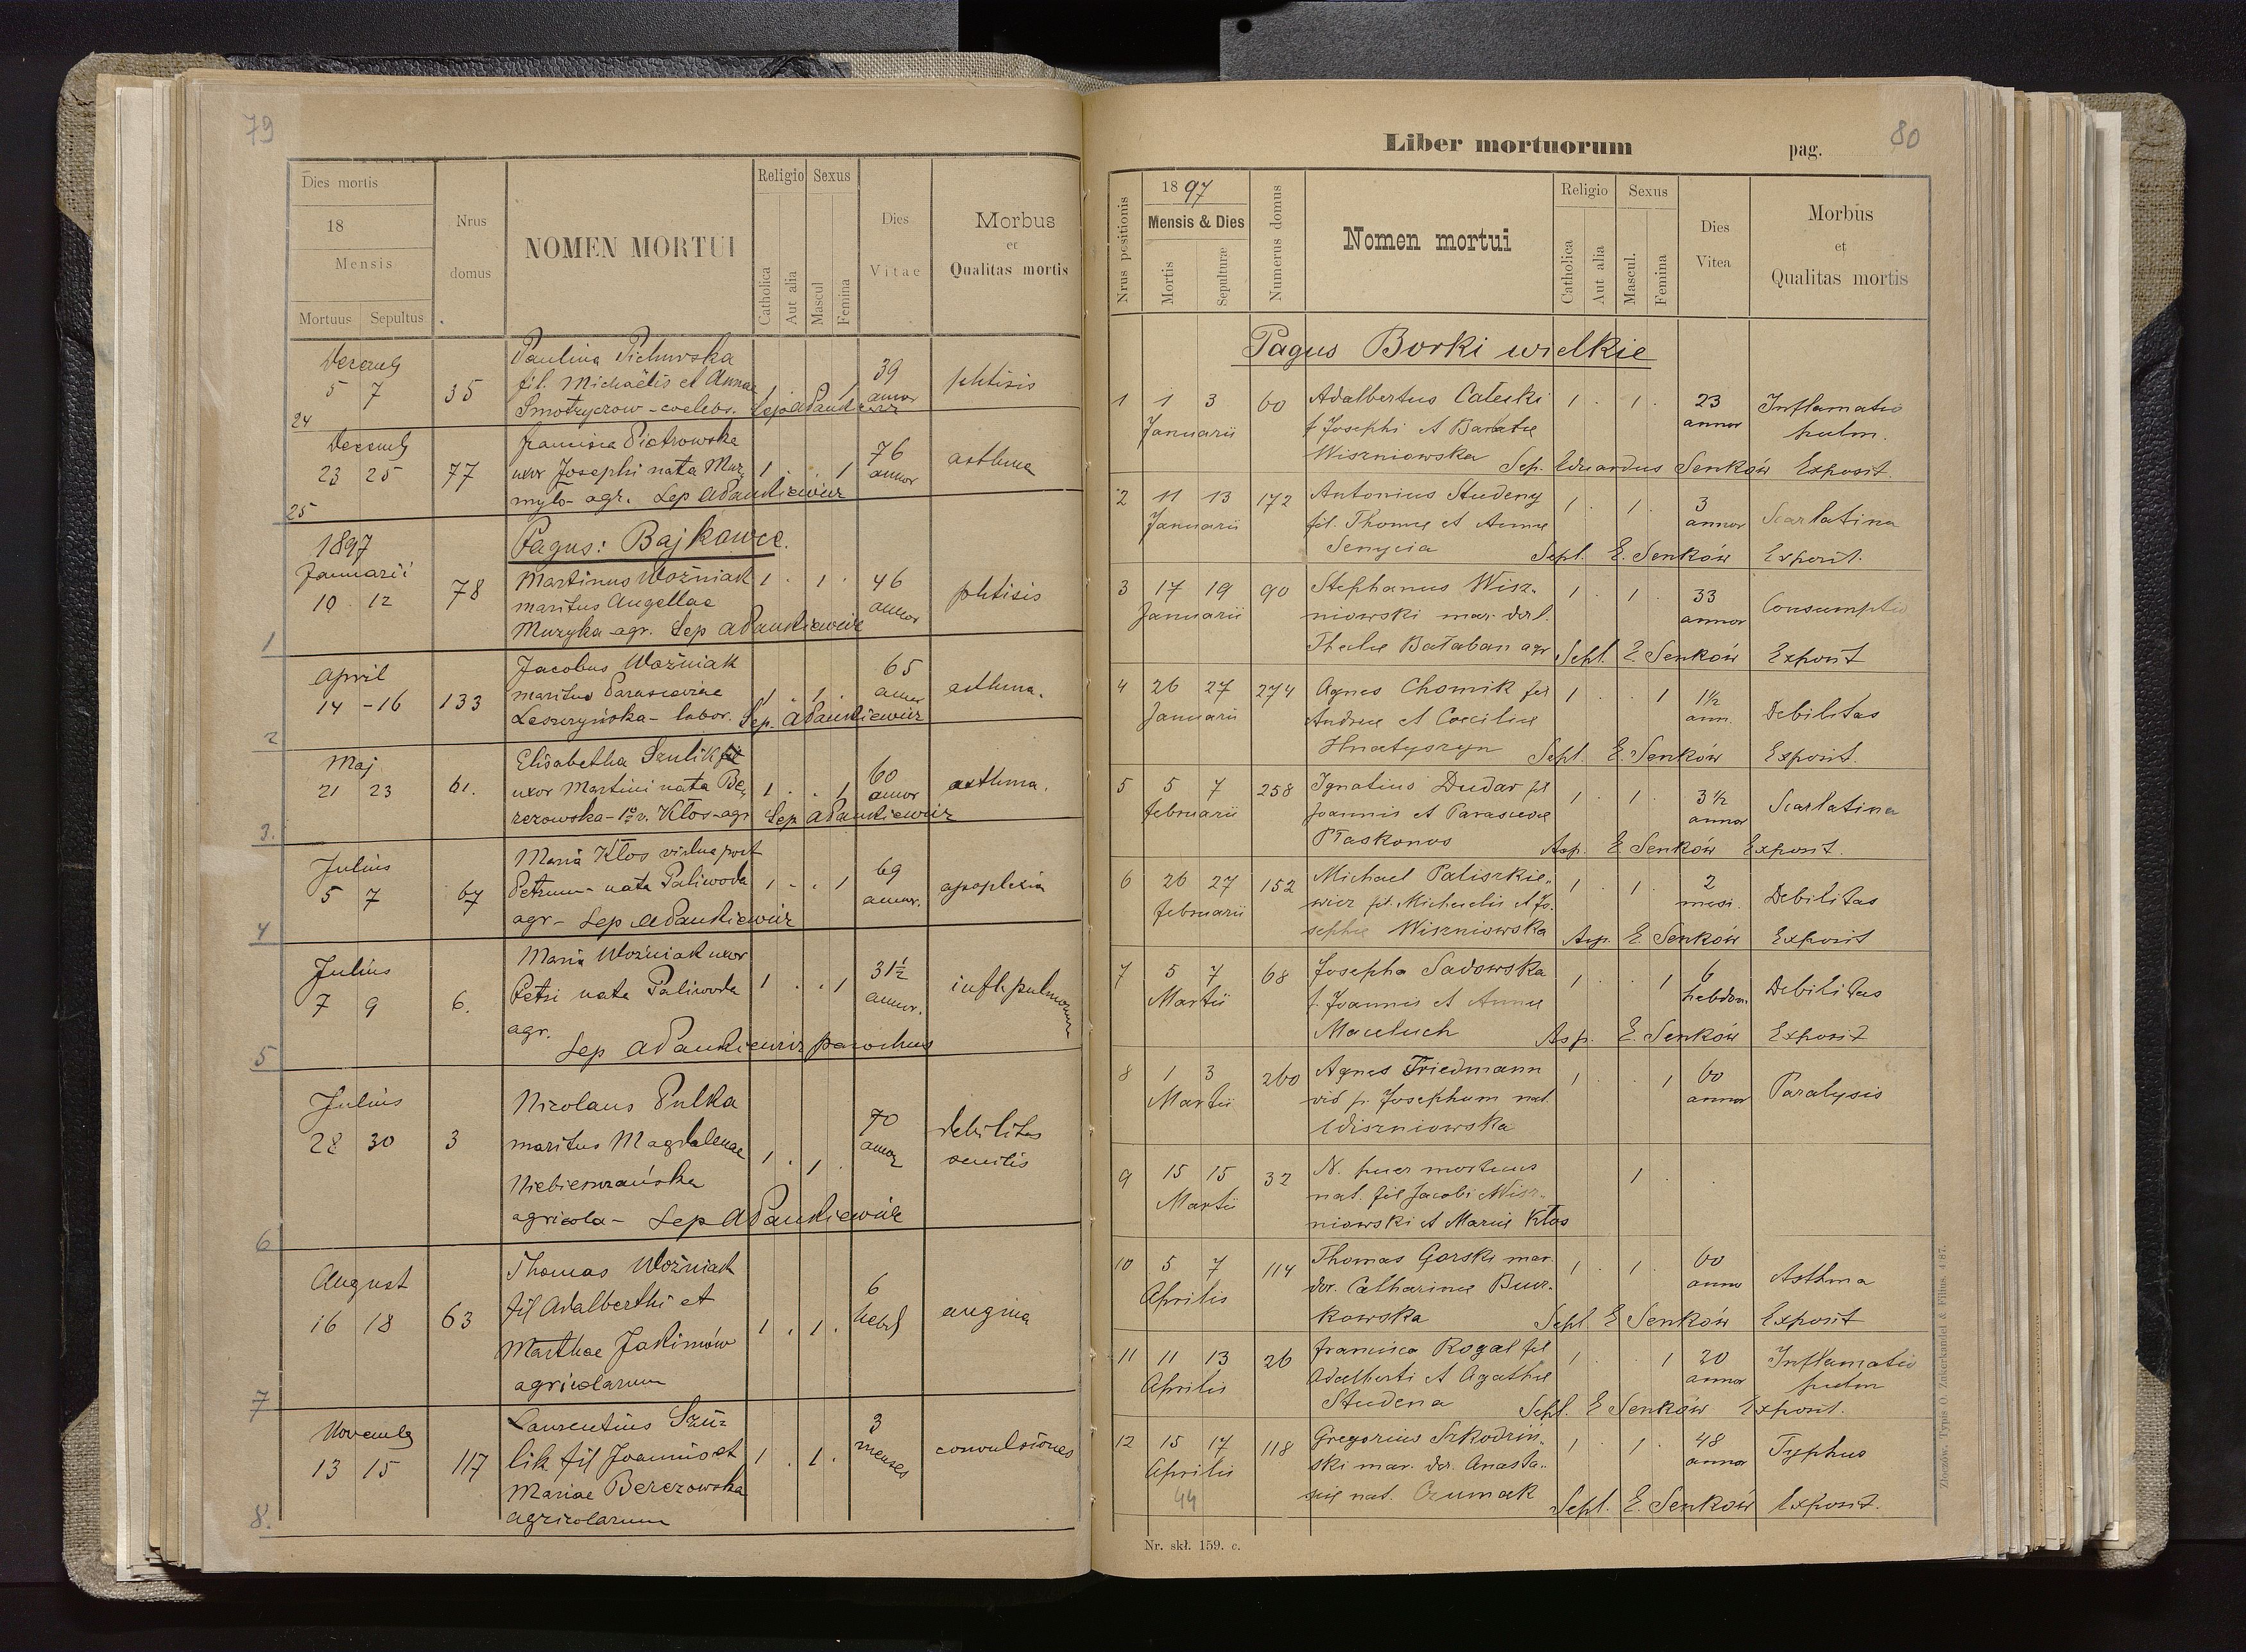 79
Dies mortis
18
Mensis
Mortuus Sepultus
Nrus domus
NOMEN MORTUI
Religio Sexus
Catholica Aut alia Mascul Femina
Dies Vitae
Morbus
et
Qualitas mortis
Decemb Paulina 39
5 7 35 fil. Michaëlis et Annae 1 . . 1 annor phtisis
24 Smotryczow - coelebs.
Decemb Francisca Piotrowska 76
23 25 77 uxor Josephi nata Mu 1 . . 1 annor asthma
25 agr. Sep APankiewicz
1897 Pagus: Bajkowce.
Januarii Martinus Woźniak 1 . 1 . 46
10 . 12 78 maritus Angellae annor phtisis
1 Muzyka agr. Sep APankiewicz
April Jacobus Woźniak 65
14 - 16 133 maritus Parasceviae 1 . 1 . annor asthma.
2 Leszczyńska - labor. Sep. APankiewicz
Maj Elisabetha Szulik
21 23 61. uxor Martini nata Be 1 . . 1 60 annor asthma.
3. rezowska - 1o v. Kłos - agr Sep APankiewicz
Julius Maria Kłos vidua post 69
5 7 67 Petrum - nata Paliwoda 1 . . 1 annor. apoplexia
4 agr - Sep APankiewicz
Julius Maria Woźniak uxor 31½
7 9 6. Petri nata Paliwoda 1 . . 1 annor. infl. pulmonum
agr.
5 Sep APankiewicz parochus
Julius Nicolaus Pulka 70
28 30 3 maritus Magdalenae 1 . 1 . annor debilitas senilis
6 agricola - Sep APankiewicz
August Thomas Woźniak 6
16 18 63 fil Adalberthi et 1 . 1 . hebd angina
Marthae Jakimów
7 agricolarum
Novemb Laurentius Szu= 3
13 15 117 lik fil Joannis et 1 . 1 . menses convulsiones
Mariae Berezowska
8. agricolarum
Liber mortuorum pag. 80
Nrus positionis
1897
Mensis & Dies
Mortis Sepulturæ
Numerus domus
Nomen mortui
Religio Sexus
Catholica Aut alia Mascul. Femina
Dies Vitea
Morbus
et
Qualitas mortis
Pagus Borki wielkie
1 1 3 60 Adalbertus 1 . 1 . 23 Inflamatio
Januarii f Josephi et annor pulm.
Wiszniowska Sep. Eduardus Senków Exposit.
2 11 13 172 Antonius Studeny 1 . 1 . 3 Scarlatina
Januarii fil. Thomae et Annae annor
Senycia Sepl. E. Senków Exposit.
3 17 19 90 Stephanus Wisz- 1 . 1 . 33 Consumptio
Januarii niowski mar. der. annor
Theclae Bałaban agr Sepl. E. Senków Exposit
4 26 27 274 Agnes Chomik fil 1 . . 1 1½ Debilitas
Januarii Andreae et Coeciliae ann.
Hnatyszyn Sepl. E. Senków Exposit.
5 5 7 258 Ignatius Dudar fil 1 . 1 . 3½ Scarlatina
Februarii Joannis et Parascevae annor
Płaskonos Asp. E Senków Exposit.
6 26 27 152 Michael Paliszkie„ 1 . 1 . 2 Debilitas
Februarii wicz fil. Michaelis et Jo- mesi.
sephae Wiszniowska Asp. E Senków Exposit
7 5 7 68 Josepha Sadowska 1 . . 1 6 Debilitas
Martii f. Joannis et Annae hebdom.
Maceluch Asp. E. Senków Exposit
8 1 3 260 Agnes Friedmann 1 . . 1 60 Paralysis
Martii vid p. Josephum nat. annor
Wiszniowska
9 15 15 32 N. puer mortuus 1 .
Martii nat. fil Jacobi Wisz-
niowski et Mariae Kłos
10 5 7 114 Thomas Gorski mar. 1 . 1 . 60 Asthma
Aprilis der. Catharinae Bur- annor
kowska Sepl E Senków Exposit
11 11 13 26 Francisca Rogal fil 1 . . 1 20 Inflamatio
Aprilis Adalberti et Agathae annor pulm
Studena Sepl. E Senków Exposit.
12 15 17 118 Gregorius Szkodziń„ 1 . 1 . 48 Typhus
Aprilis ski mar. der. Anasta„ annor
44 siae nat. Czumak Sepl. E. Senków Exposit.
Nr. skł. 159. c.
Złoczów. Typis O. Zukerkandel & Filius. 487.